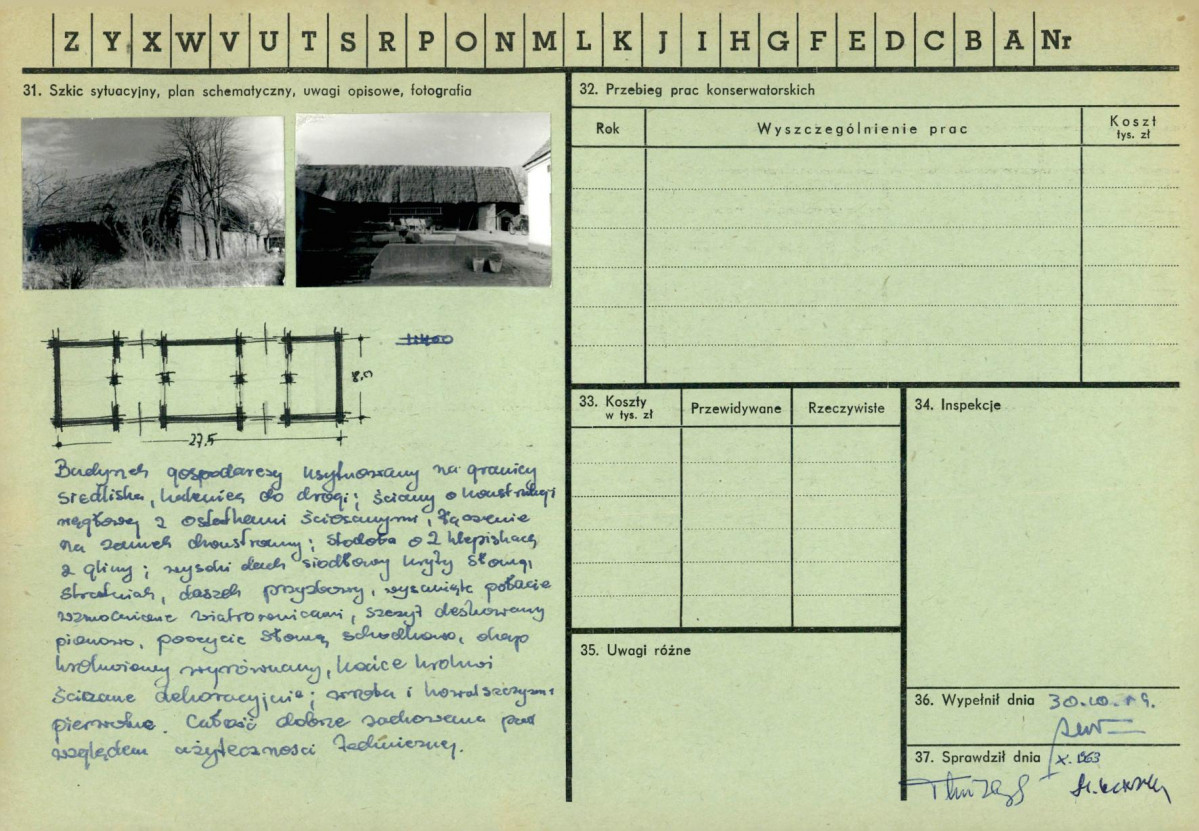 Z Y X W V U T S R P O N M L K J I H G F E D C B A Nr
31. Szkic sytuacyjny, plan schematyczny, uwagi opisowe, fotografia
8,0
27,5
Budynek gospodarczy usytuowany na granicy
siedliska, kalenicą do drogi; ściany o konstrukcji
węgłowej z ostatkami ściosanymi, łączenie
na zamek dwustronny; stodoła o 2 klepiskach
z gliny; wysoki dach siodłowy kryty słomą,
daszek przyzbowy, wysunięte połacie
wzmocnione wiatrownicami, szczyt deskowany
pionowo, poszycie słomą schodkowo, okap
krokwiowy wyrównany, końce krokwi
ścinane dekoracyjnie; wrota i
pierwotne. Całość dobrze zachowana pod
względem użyteczności technicznej.
32. Przebieg prac konserwatorskich
Rok
Wyszczególnienie prac
Koszt
tys. zł
33. Koszty
w tys. zł
Przewidywane
Rzeczywiste
34. Inspekcje
35. Uwagi różne
36. Wypełnił dnia
37. Sprawdził dnia X. 1963